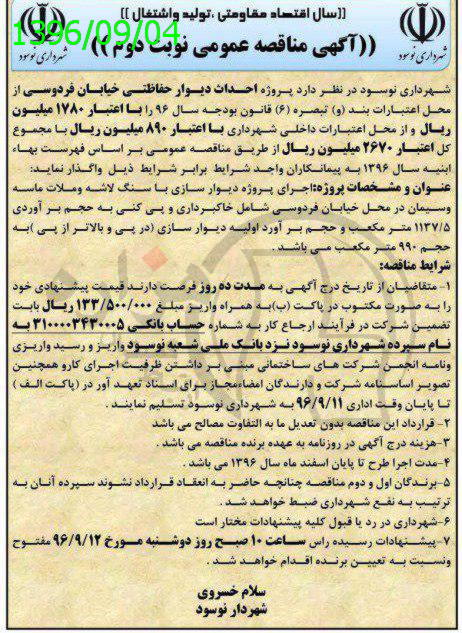 [[سال اقتصاد مقاومتی ،تولید واشتغال ]]
1396/09/04
((آگهی مناقصه عمومی نوبت دوم ))
شهرداری نوسود
شهرداری نوسود
شهرداری نوسود در نظر دارد پروژه احداث دیوار حفاظتی خیابان فردوسی از
محل اعتبارات بند (و) تبصره (۶) قانون بودجه سال ۹۶ را با اعتبار ۱۷۸۰ میلیون
ریال و از محل اعتبارات داخلی شهرداری با اعتبار ۸۹۰ میلیون ریال با مجموع
کل اعتبار ۲۶۷۰ میلیون ریال از طریق مناقصه عمومی بر اساس فهرست بهاء
ابنیه سال ۱۳۹۶ به پیمانکاران واجد شرایط برابر شرایط ذیل واگذار نماید:
عنوان و مشخصات پروژه:اجرای پروژه دیوار سازی با سنگ لاشه وملات ماسه
وسیمان در محل خیابان فردوسی شامل خاکبرداری و پی کنی به حجم بر آوردی
۱۱۳۷/۵ متر مکعب و حجم بر آورد اولیه دیوار سازی (در پی و بالاتر از پی )به
حجم ۹۹۰ متر مکعب می باشد .
شرایط مناقصه:
۱- متقاضیان از تاریخ درج آگهی به مدت ده روز فرصت دارند قیمت پیشنهادی خود
را به صورت مکتوب در پاکت (ب)به همراه واریز مبلغ ۱۳۳/۵۰۰/۰۰۰ ریال بابت
تضمین شرکت در فرآیند ارجاع کار به شماره حساب بانکی ۳۱۰۰۰۰۳۴۳۰۰۰۵ به
نام سپرده شهرداری نوسود نزد بانک ملی شعبه نوسود واریز و رسید واریزی
ونامه انجمن شرکت های ساختمانی مبنی بر داشتن ظرفیت اجرای کارو همچنین
تصویر اساسنامه شرکت و دارندگان امضاءمجاز برای اسناد تعهد آور در (پاکت الف )
تا پایان وقت اداری ۹۶/۹/۱۱ به شهرداری نوسود تسلیم نمایند .
۲- قرارداد این مناقصه بدون تعدیل ما به التفاوت مصالح می باشد
۳-هزینه درج آگهی در روزنامه به عهده برنده مناقصه می باشد .
۴-مدت اجرا طرح تا پایان اسفند ماه سال ۱۳۹۶ می باشد .
۵-برندگان اول و دوم مناقصه چنانچه حاضر به انعقاد قرارداد نشوند سپرده آنان به
ترتیب به نفع شهرداری ضبط خواهد شد .
۶-شهرداری در رد یا قبول کلیه پیشنهادات مختار است
۷-پیشنهادات رسیده راس ساعت ۱۰ صبح روز دوشنبه مورخ ۹۶/۹/۱۲ مفتوح
ونسبت به تعیین برنده اقدام خواهد شد .
سلام خسروی
شهردار نوسود